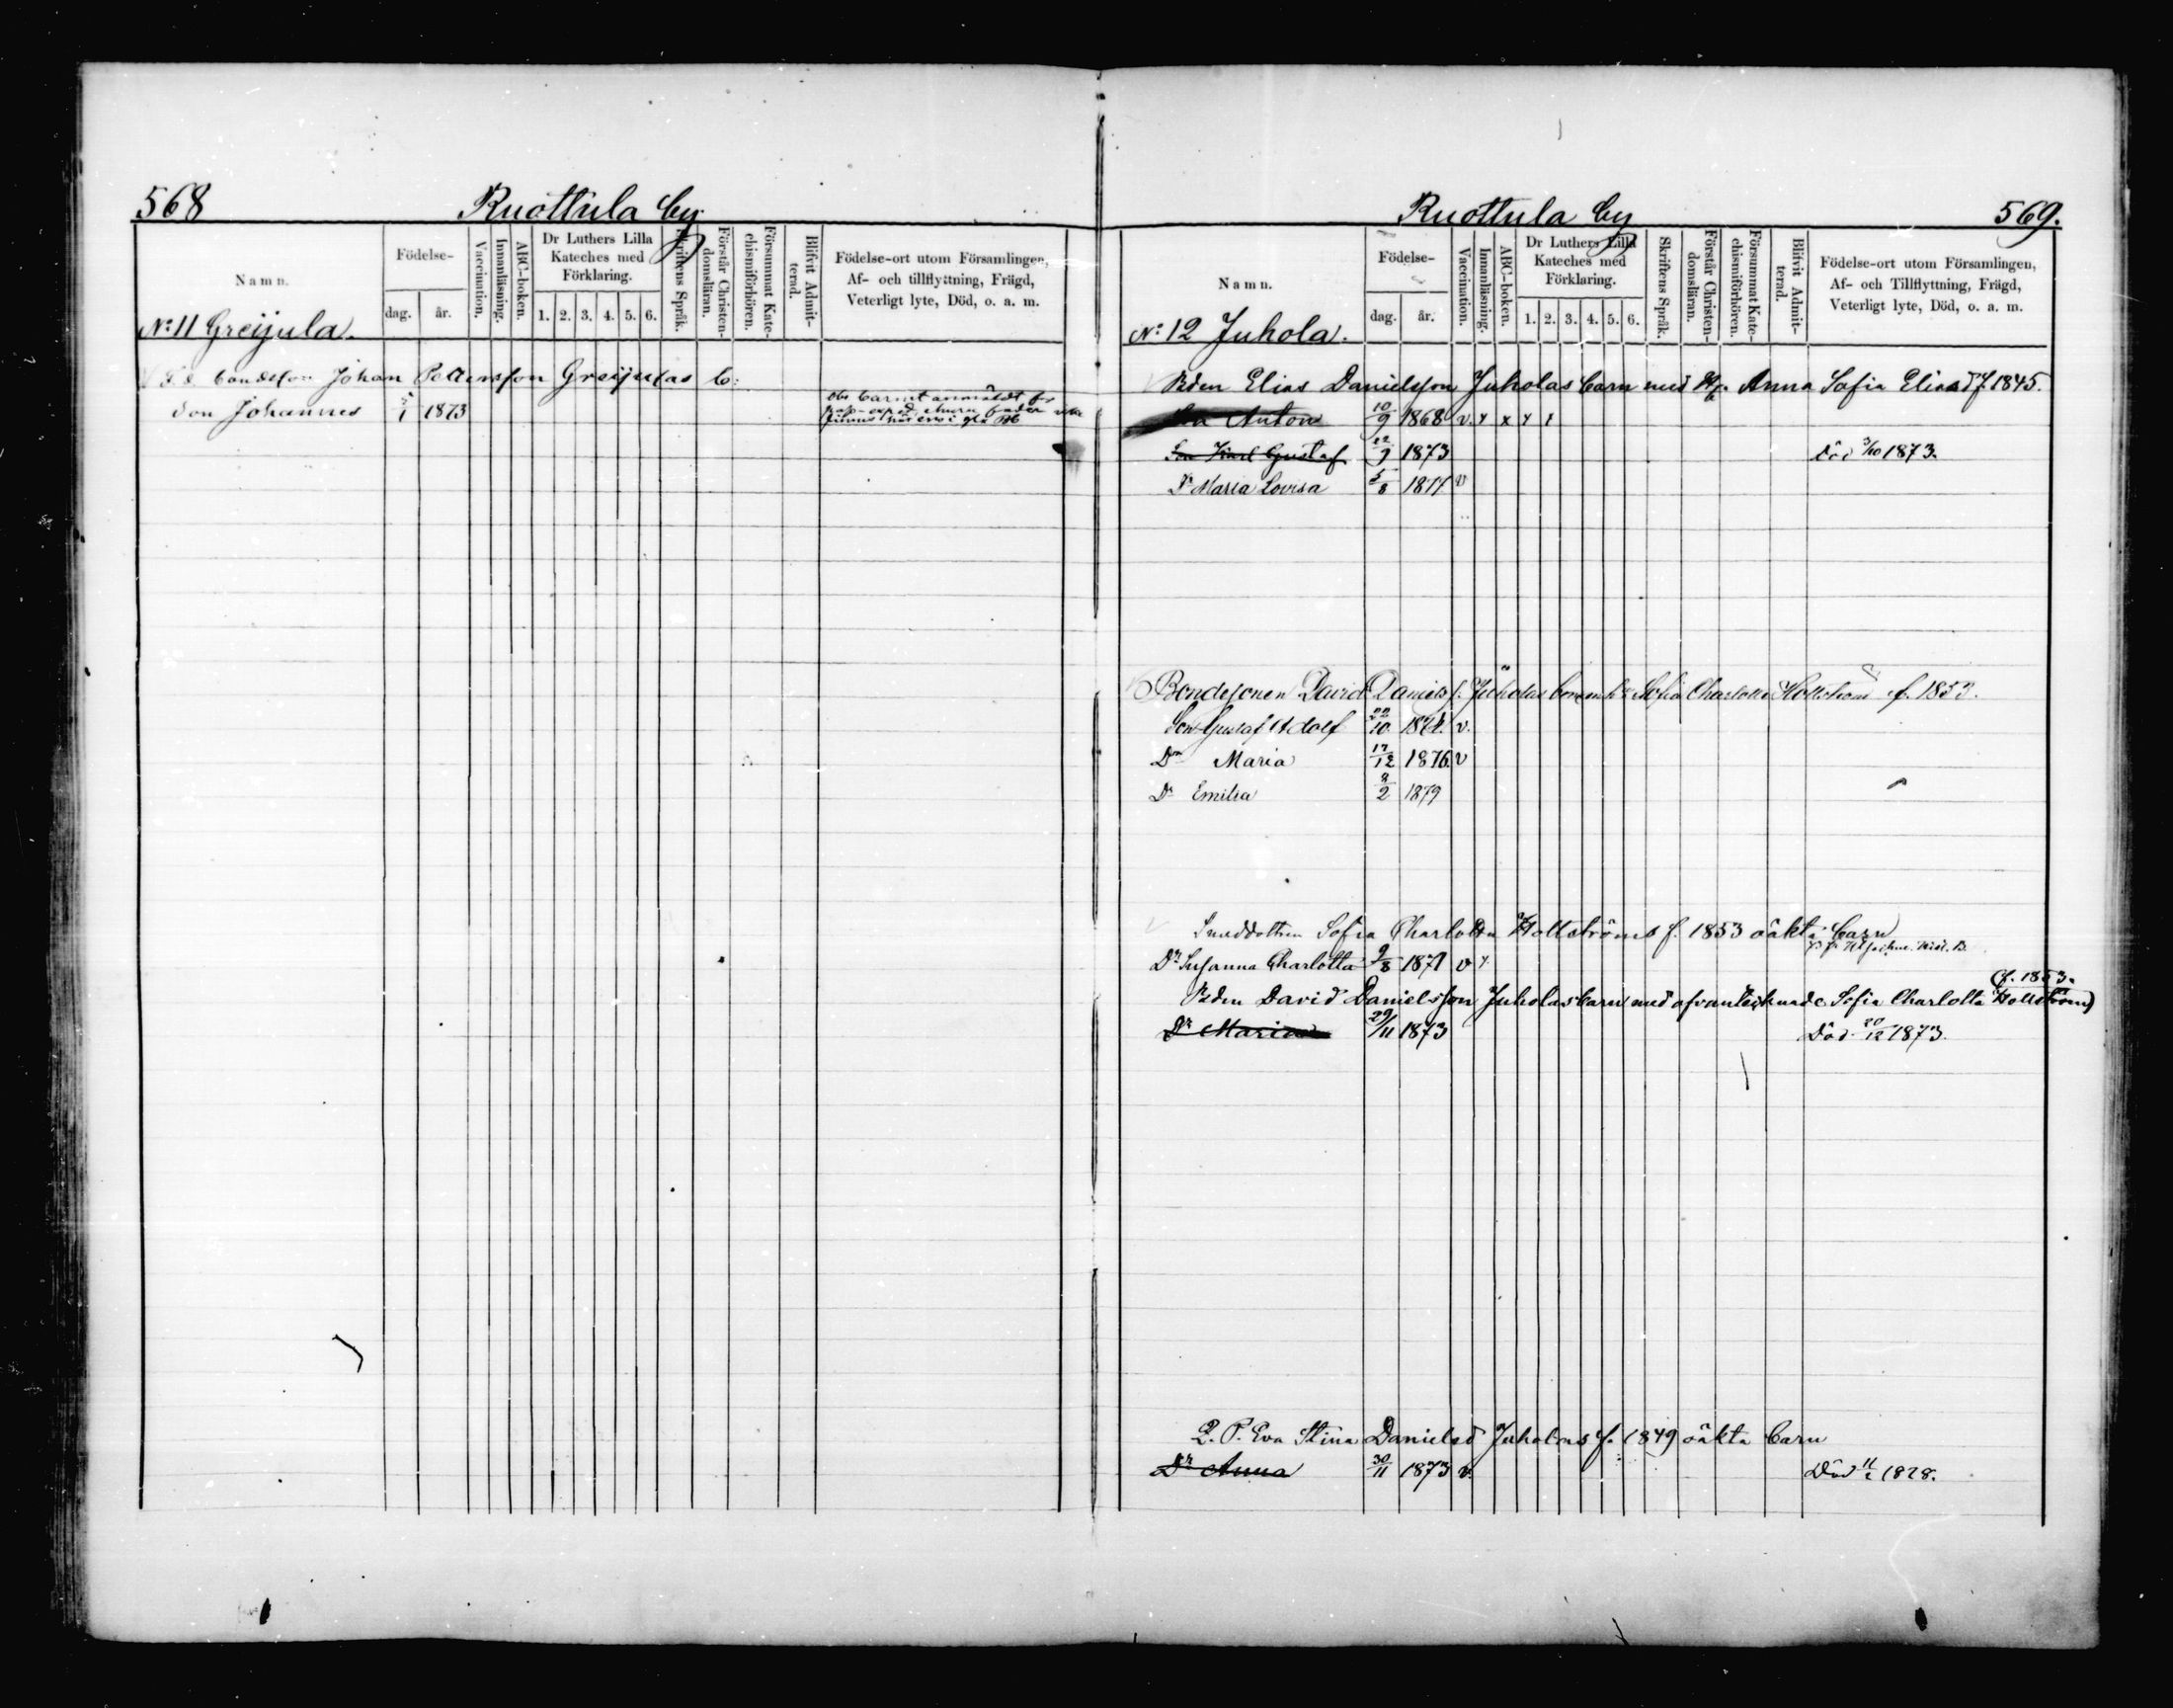 568
Ruottula by
Namn.
Födelse-
dag.
år.
Vaccination.
Innanläsning.
ABC-boken.
Dr Luthers Lilla
Kateches med
Förklaring.
1. 2. 3. 4. 5. 6.
Skriftens Språk.
Förstår Christen-
domsläran.
Försummat Kate-
chismiförhören.
Blifvit Admit-
terad.
Födelse-ort utom Församlingen,
Af- och tillflyttning, Frägd,
Veterligt lyte, Död, o. a. m.
No: 11 Greijula.
Johan Pettersson Greijulas b:
Son Johannes 1 1873
Obs barnet anmäldt
Ruottula by
569.
Namn.
Födelse-
dag.
år.
Vaccination.
Innanläsning.
ABC-boken.
Dr Luthers Lilla
Kateches med
Förklaring.
1. 2. 3. 4. 5. 6.
Skriftens Språk.
Förstår Christen-
domsläran.
Försummat Kate-
chismiförhören.
Blifvit Admit-
terad.
Födelse-ort utom Församlingen,
Af- och Tillflyttning, Frägd,
Veterligt lyte, Död, o. a. m.
No: 12 Juhola.
Bden Elias Danielsson Juholas barn med Anna Sofia Eliasd f 1845.
Son Anton 10/9 1868 v. x x x x
Son Karl Gustaf 22/9 1873 Död 3/10 1873.
Dr Maria Lovisa 5/8 1877 v
Bondesonen David Daniels s. Juholas barn m h u Sofia Charlotta Hollström f. 1853.
Son Gustaf Adolf 22/10 1874. v.
Dr Maria 17/12 1876. v
Dr Emilia 8/2 1879
Smeddottren Sofia Charlotta Hollströms f. 1853 oäkta barn
Dr Susanna Charlotta 9/8 1871 v x
(f. 1853.
Bden David Danielsson Juholas barn med ofvantecknade Sofia Charlotta Hollström)
Dr Maria 29/11 1873 Död 20/12 1873.
Q. P. Eva Stina Danielsd Juholas f. 1849 oäkta barn
Dr Anna 30/11 1873 v. Död 11/2 1878.